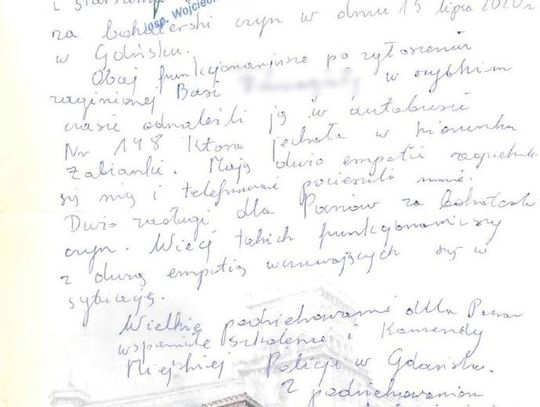 i starsz
asp. Wojciech
za bohaterski czyn w dniu 15 lipca 2020 r
w Gdńsku.
Obaj funkcjonariusze po zgłoszeniu
zaginionej Basi w szybkim
czasie odnaleźli ją w autobusie
Nr 148 która jechała w kierunku
Żabianki. Mają dużo empatii zaopieko
się nią i telefonicznie pocieszali mnie.
Dużo zasługi dla Panów za bohaterski
czyn. Więcej takich funkcjonariuszy
z dużą empatią wczuwających się w
sytuację.
Wielkie podziękowania dla Panów
wspaniałe szkolenie i Komendy
Miejskiej Policji w Gdańsku.
Z podziękowaniem